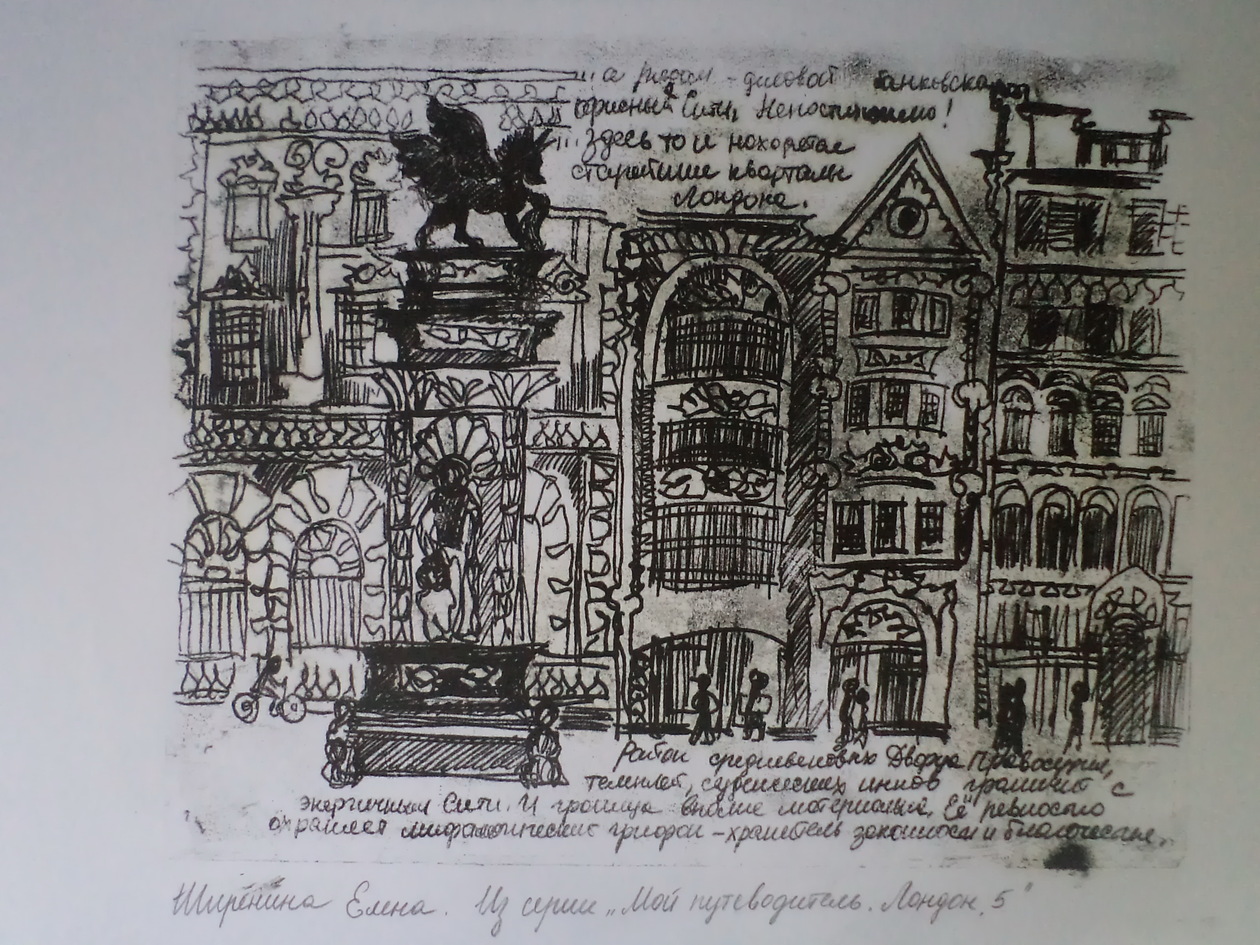 ... а рядом - деловой банковско
офисный Сити. Непостижимо!
... Здесь то и находятся
старейшие кварталы
Лондона.
Район средневековых Дворца Правосудия,
темплей, судейских иннов граничит с
энергичным Сити. И граница вполне материальна. Её ревностно
охраняет мифологический грифон - хранитель законности и благочестия.
Ширёнина Елена. Из серии „Мой путеводитель. Лондон. 5"